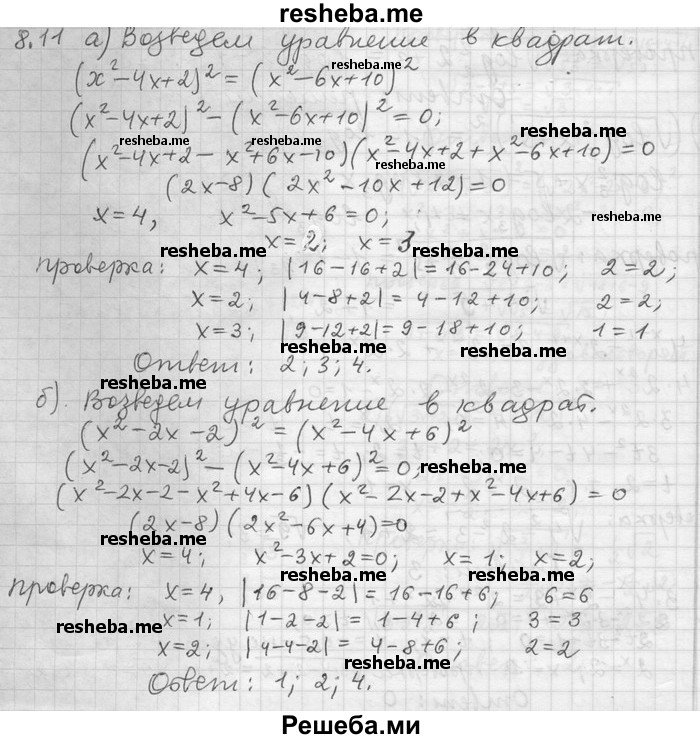 resheba.me
8.11 а) Возведем уравнение в квадрат.
(x²-4x+2)² = (x²-6x+10)²
resheba.me
(x²-4x+2)² - (x²-6x+10)² = 0;
resheba.me resheba.me
(x²-4x+2 - x²+6x-10)(x²-4x+2+x²-6x+10) = 0
resheba.me
(2x-8)(2x²-10x+12)=0
x=4, x²-5x+6=0;
resheba.me
x=2; x=3
resheba.me resheba.me
проверка: x=4; |16-16+2|=16-24+10; 2=2;
x=2; |4-8+2|= 4-12+10; 2=2;
resheba.me
x=3; |9-12+2|=9-18+10; 1=1
resheba.me resheba.me
Ответ: 2; 3; 4.
resheba.me
б). Возведем уравнение в квадрат.
resheba.me
(x²-2x-2)² = (x²-4x+6)²
(x²-2x-2)² - (x²-4x+6)² = 0;
resheba.me
(x²-2x-2-x²+4x-6)(x²-2x-2+x²-4x+6) = 0
(2x-8)(2x²-6x+4)=0
resheba.me
x=4; x²-3x+2=0; x=1; x=2;
resheba.me resheba.me
проверка: x=4, |16-8-2|=16-16+6; 6=6
x=1; |1-2-2|=1-4+6; 3=3
resheba.me
x=2; |4-4-2|= 4-8+6; 2=2
resheba.me
Ответ: 1; 2; 4.
Решеба.ми